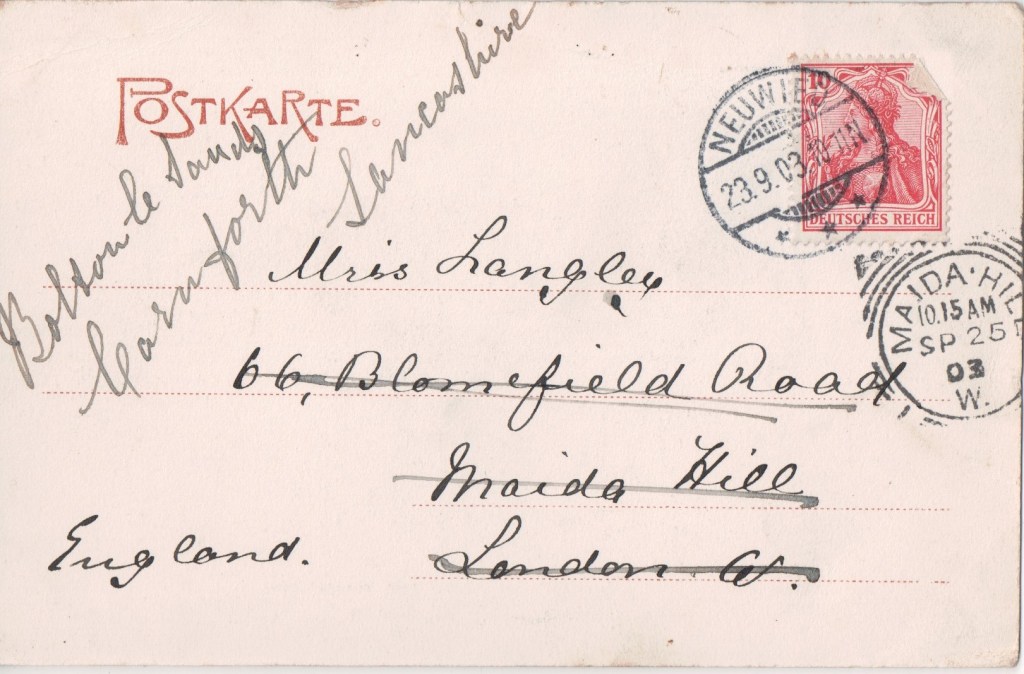 POSTKARTE.
Bolton le Sands
Carnforth
Lancashire
10
DEUTSCHES REICH
NEUWIED
23.9.03
MAIDA·HILL
10.15 AM
SP 25
03
W.
Miss Langley
66, Blomfield Road
Maida Hill
London. W.
England.